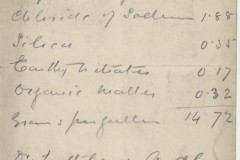 Chloride of Sodium 1.88
Silica 0.35
Earthy Nitrates 0.17
Organic Matter 0.32
Grains per gallon 14 72